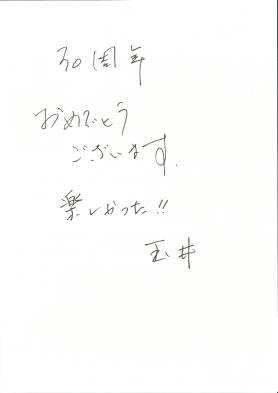 30周年
おめでとう
ございます.
楽しかった!!
玉井